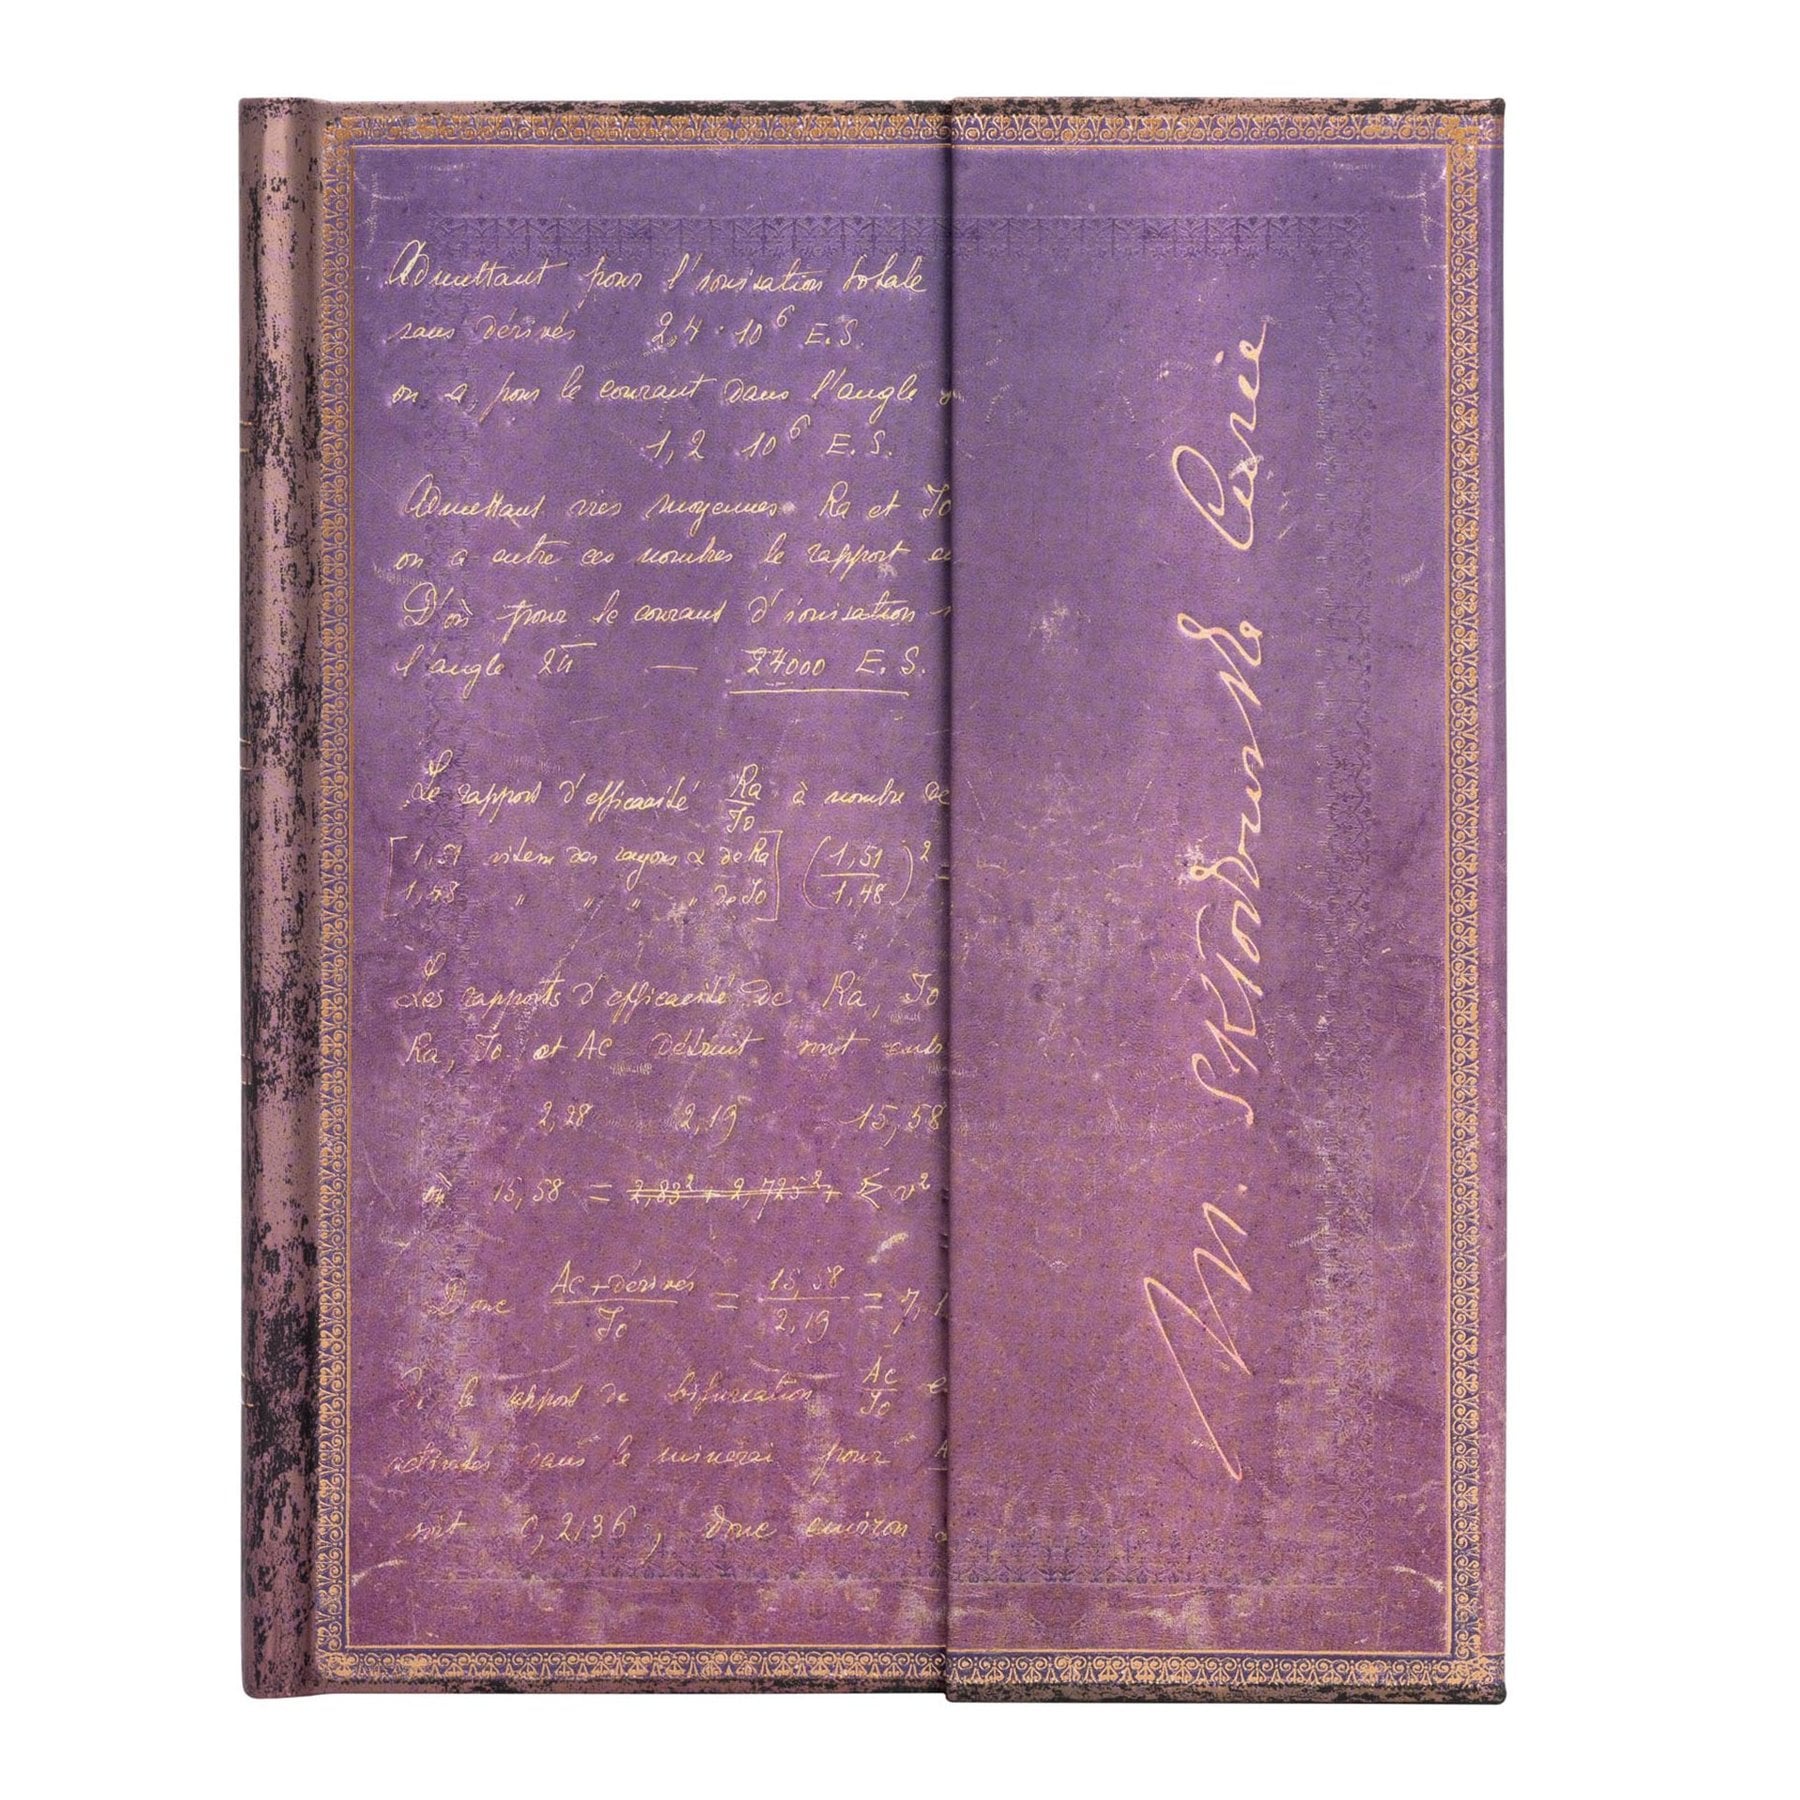 Admettant pour l'ionisation totale
sans dérivés 2,4 · 10⁶ E.S.
on a pour le courant dans l'angle
1,2 10⁶ E.S.
Admettant vies moyennes Ra et Io
on a entre ces nombres le rapport
D'où pour le courant d'ionisation
l'angle 2π — 27000 E.S.
Le rapport d'efficacité Ra/Io à nombre de
[1,51 vitesse des rayons α de Ra] (1,51/1,48)² =
[1,48 " " " " de Io]
Les rapports d'efficacité de Ra, Io
Ra, Io et Ac détruit sont entre
2,28 2,19 15,58
où 15,58 = 2,83² + 2,725² + Σ v²
Donc Ac + dérivés/Io = 15,58/2,19 = 7,1
Si le rapport de bifurcation Ac/Io
activités dans le minerai pour
soit 0,2136, donc environ
M. Skłodowska Curie